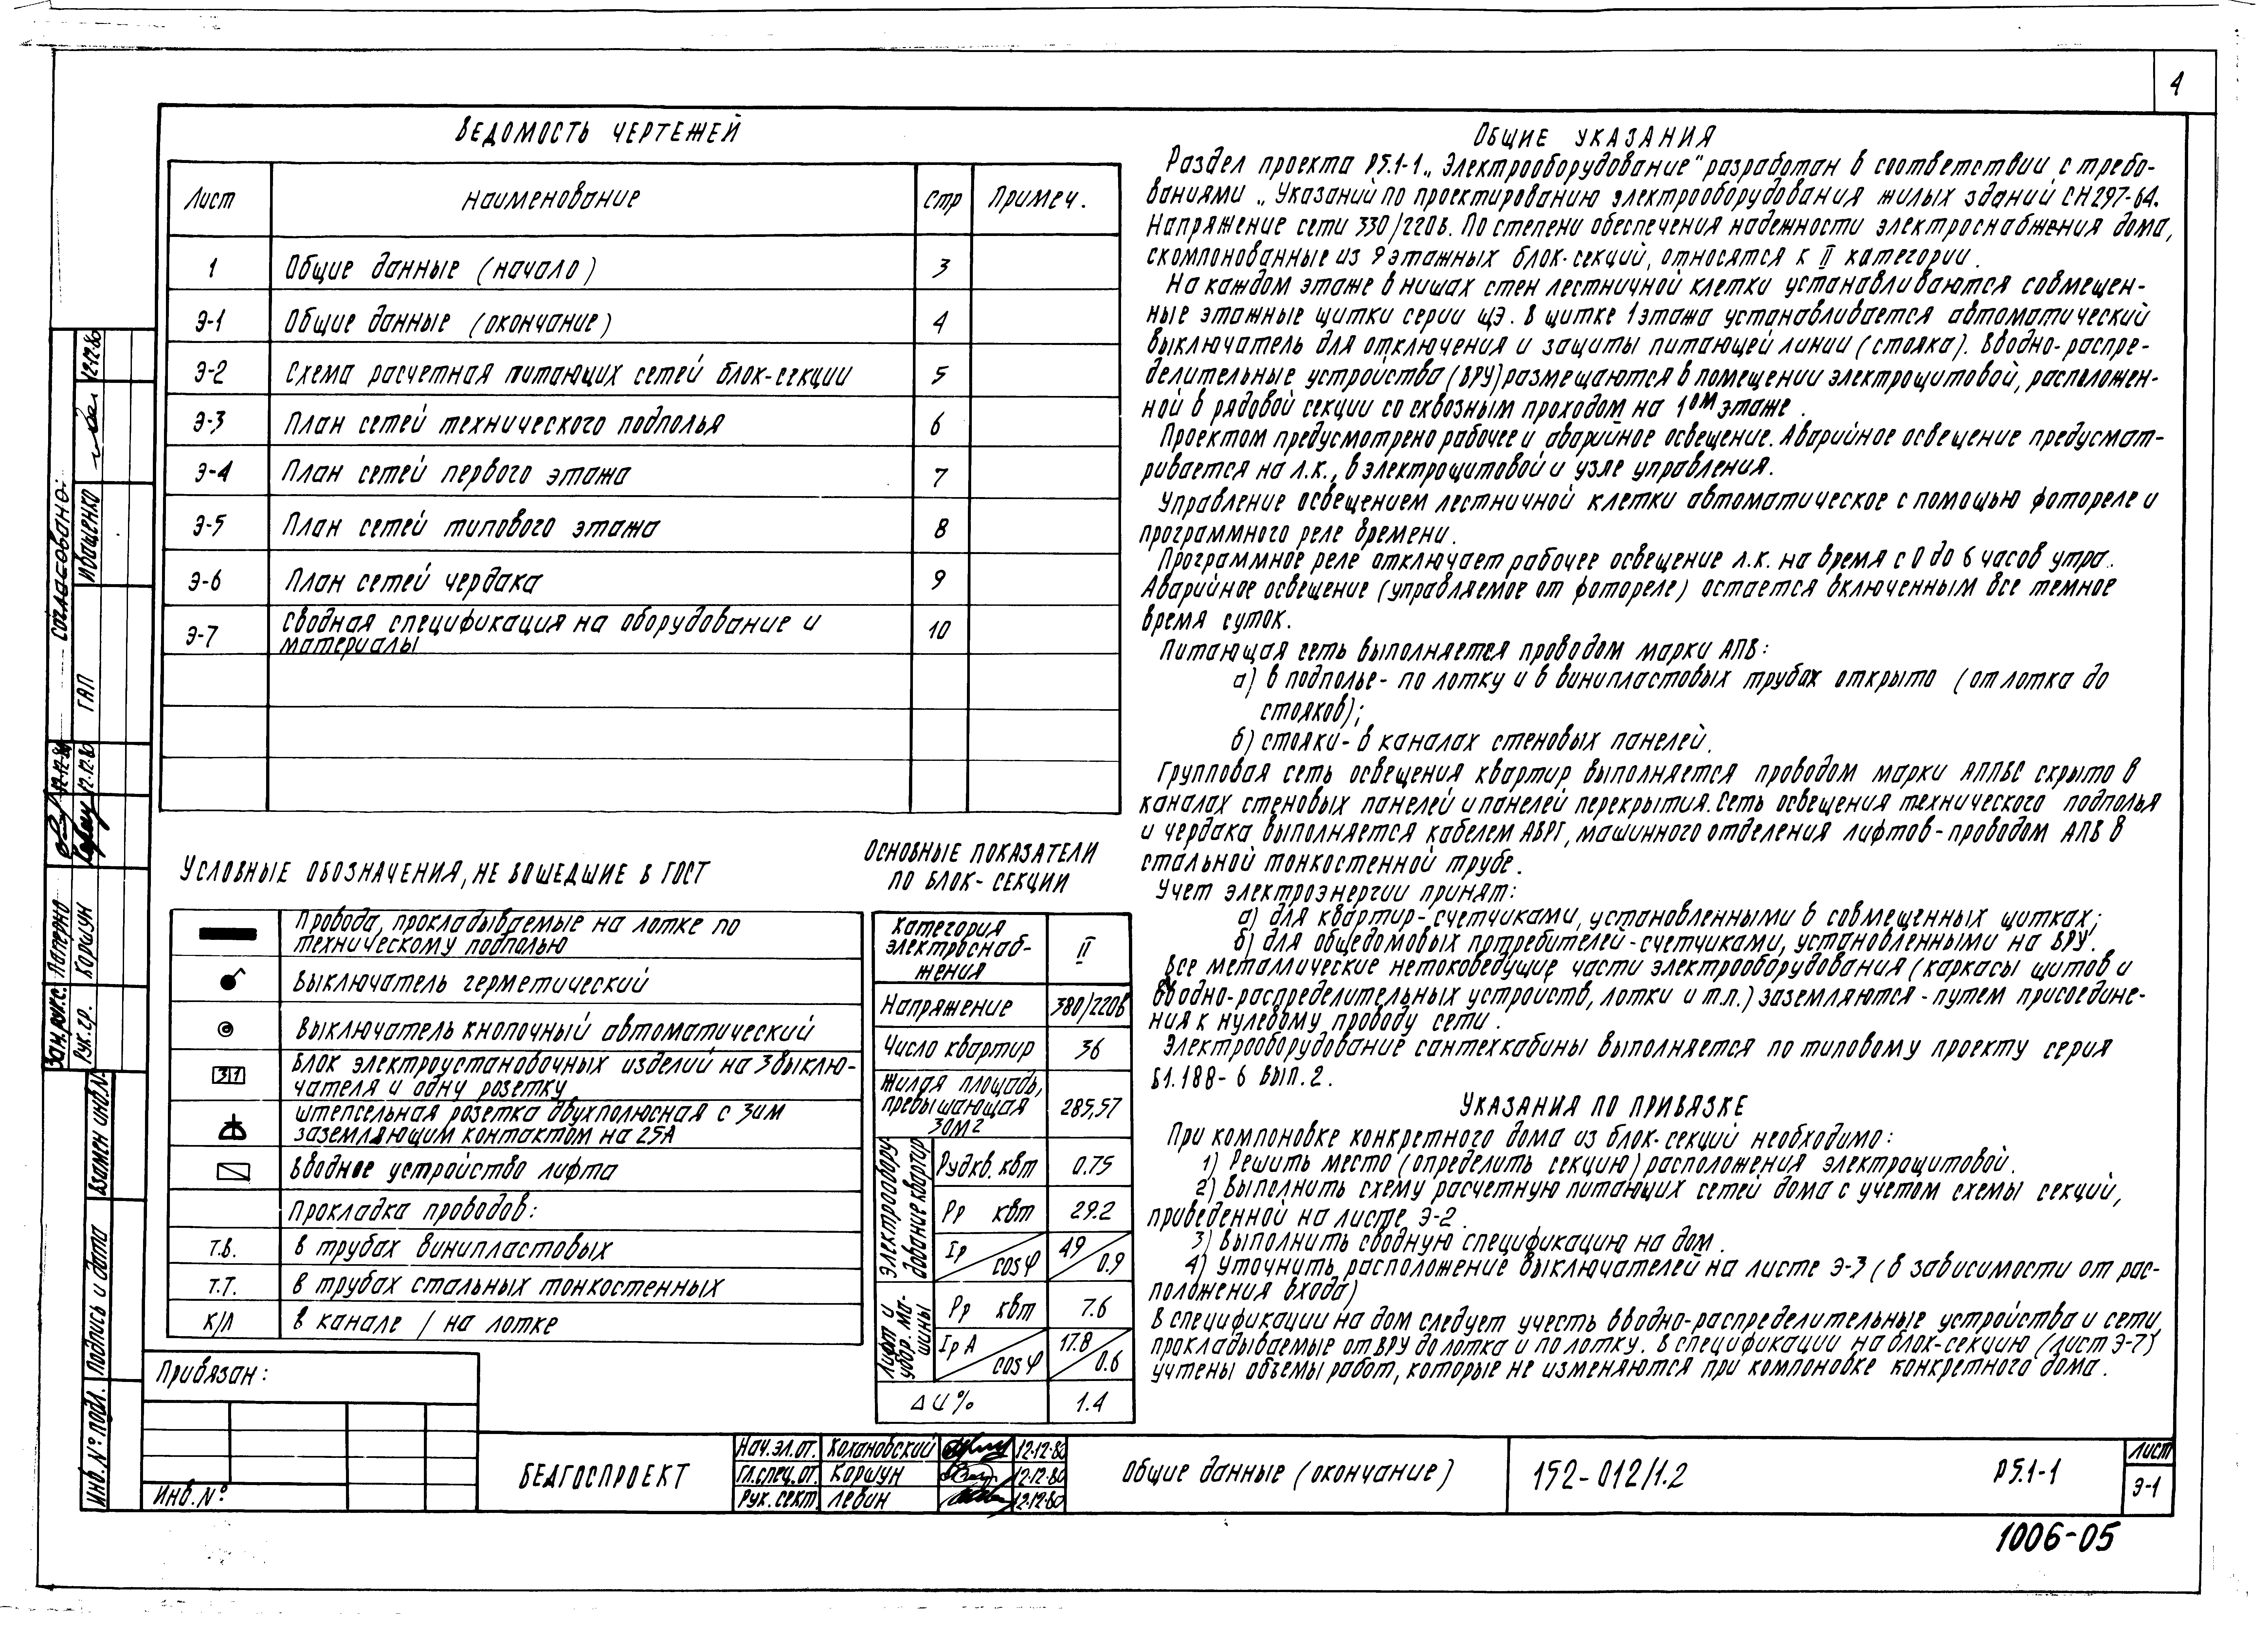 4
ВЕДОМОСТЬ ЧЕРТЕЖЕЙ
Лист Наименование Стр Примеч.
1 Общие данные (начало) 3
Э-1 Общие данные (окончание) 4
Э-2 Схема расчетная питающих сетей блок-секции 5
Э-3 План сетей технического подполья 6
Э-4 План сетей первого этажа 7
Э-5 План сетей типового этажа 8
Э-6 План сетей чердака 9
Э-7 Сводная спецификация на оборудование и
материалы 10
УСЛОВНЫЕ ОБОЗНАЧЕНИЯ, НЕ ВОШЕДШИЕ В ГОСТ
Провода, прокладываемые на лотке по
техническому подполью
Выключатель герметический
Выключатель кнопочный автоматический
3 1 Блок электроустановочных изделий на 3 выклю-
чателя и одну розетку
Штепсельная розетка двухполюсная с 3им
заземляющим контактом на 25А
Вводное устройство лифта
Прокладка проводов:
Т.В. в трубах винипластовых
Т.Т. в трубах стальных тонкостенных
К/Л в канале / на лотке
ОСНОВНЫЕ ПОКАЗАТЕЛИ
ПО БЛОК-СЕКЦИИ
Категория
электроснаб-
жения II
Напряжение 380/220в
Число квартир 36
Жилая площадь,
превышающая
30м2 285,57
Электрообору-
дование квартир
Рудкв. квт 0.75
Рр квт 29.2
Iр cosφ 49 0.9
Лифт и
убор. ма-
шины
Рр квт 7.6
Iр А cosφ 17.8 0.6
ΔU% 1.4
ОБЩИЕ УКАЗАНИЯ
Раздел проекта Р5.1-1 „Электрооборудование" разработан в соответствии с требо-
ваниями „Указаний по проектированию электрооборудования жилых зданий СН297-64.
Напряжение сети 330/220в. По степени обеспечения надежности электроснабжения дома,
скомпонованные из 9 этажных блок-секций, относятся к II категории.
На каждом этаже в нишах стен лестничной клетки устанавливаются совмещен-
ные этажные щитки серии ЩЭ. В щитке 1 этажа устанавливается автоматический
выключатель для отключения и защиты питающей линии (стояка). Вводно-распре-
делительные устройства (ВРУ) размещаются в помещении электрощитовой, расположен-
ной в рядовой секции со сквозным проходом на 1ом этаже.
Проектом предусмотрено рабочее и аварийное освещение. Аварийное освещение предусмат-
ривается на л.к., в электрощитовой и узле управления.
Управление освещением лестничной клетки автоматическое с помощью фотореле и
программного реле времени.
Программное реле отключает рабочее освещение л.к. на время с 0 до 6 часов утра.
Аварийное освещение (управляемое от фотореле) остается включенным все темное
время суток.
Питающая сеть выполняется проводом марки АПВ:
а) в подполье - по лотку и в винипластовых трубах открыто (от лотка до
стояков);
б) стояки - в каналах стеновых панелей.
Групповая сеть освещения квартир выполняется проводом марки АППВС скрыто в
каналах стеновых панелей и панелей перекрытия. Сеть освещения технического подполья
и чердака выполняется кабелем АВРГ, машинного отделения лифтов - проводом АПВ в
стальной тонкостенной трубе.
Учет электроэнергии принят:
а) для квартир - счетчиками, установленными в совмещенных щитках;
б) для общедомовых потребителей - счетчиками, установленными на ВРУ.
Все металлические нетоковедущие части электрооборудования (каркасы щитов и
вводно-распределительных устройств, лотки и т.п.) заземляются - путем присоедине-
ния к нулевому проводу сети.
Электрооборудование сантехкабины выполняется по типовому проекту серия
Б1.188-6 вып. 2.
УКАЗАНИЯ ПО ПРИВЯЗКЕ
При компоновке конкретного дома из блок-секций необходимо:
1) Решить место (определить секцию) расположения электрощитовой.
2) Выполнить схему расчетную питающих сетей дома с учетом схемы секций,
приведенной на листе Э-2.
3) Выполнить сводную спецификацию на дом.
4) Уточнить расположение выключателей на листе Э-3 (в зависимости от рас-
положения входа)
В спецификации на дом следует учесть вводно-распределительные устройства и сети,
прокладываемые от ВРУ до лотка и по лотку. В спецификации на блок-секцию (лист Э-7)
учтены объемы работ, которые не изменяются при компоновке конкретного дома.
Согласовано:
ГАП Иващенко 12.12.80
Зам.рук.с. Паперно 12.12.80
Рук.гр. Коршун 12.12.80
Взамен инв.№
Подпись и дата
Инв. № подл.
Привязан:
Инв. №
БЕЛГОСПРОЕКТ
Нач.эл.от. Кохановский 12.12.80
Гл.спец.от. Коршун 12.12.80
Рук. сект. Левин 12.12.80
Общие данные (окончание)
152-012/1.2
Р5.1-1
Лист
Э-1
1006-05